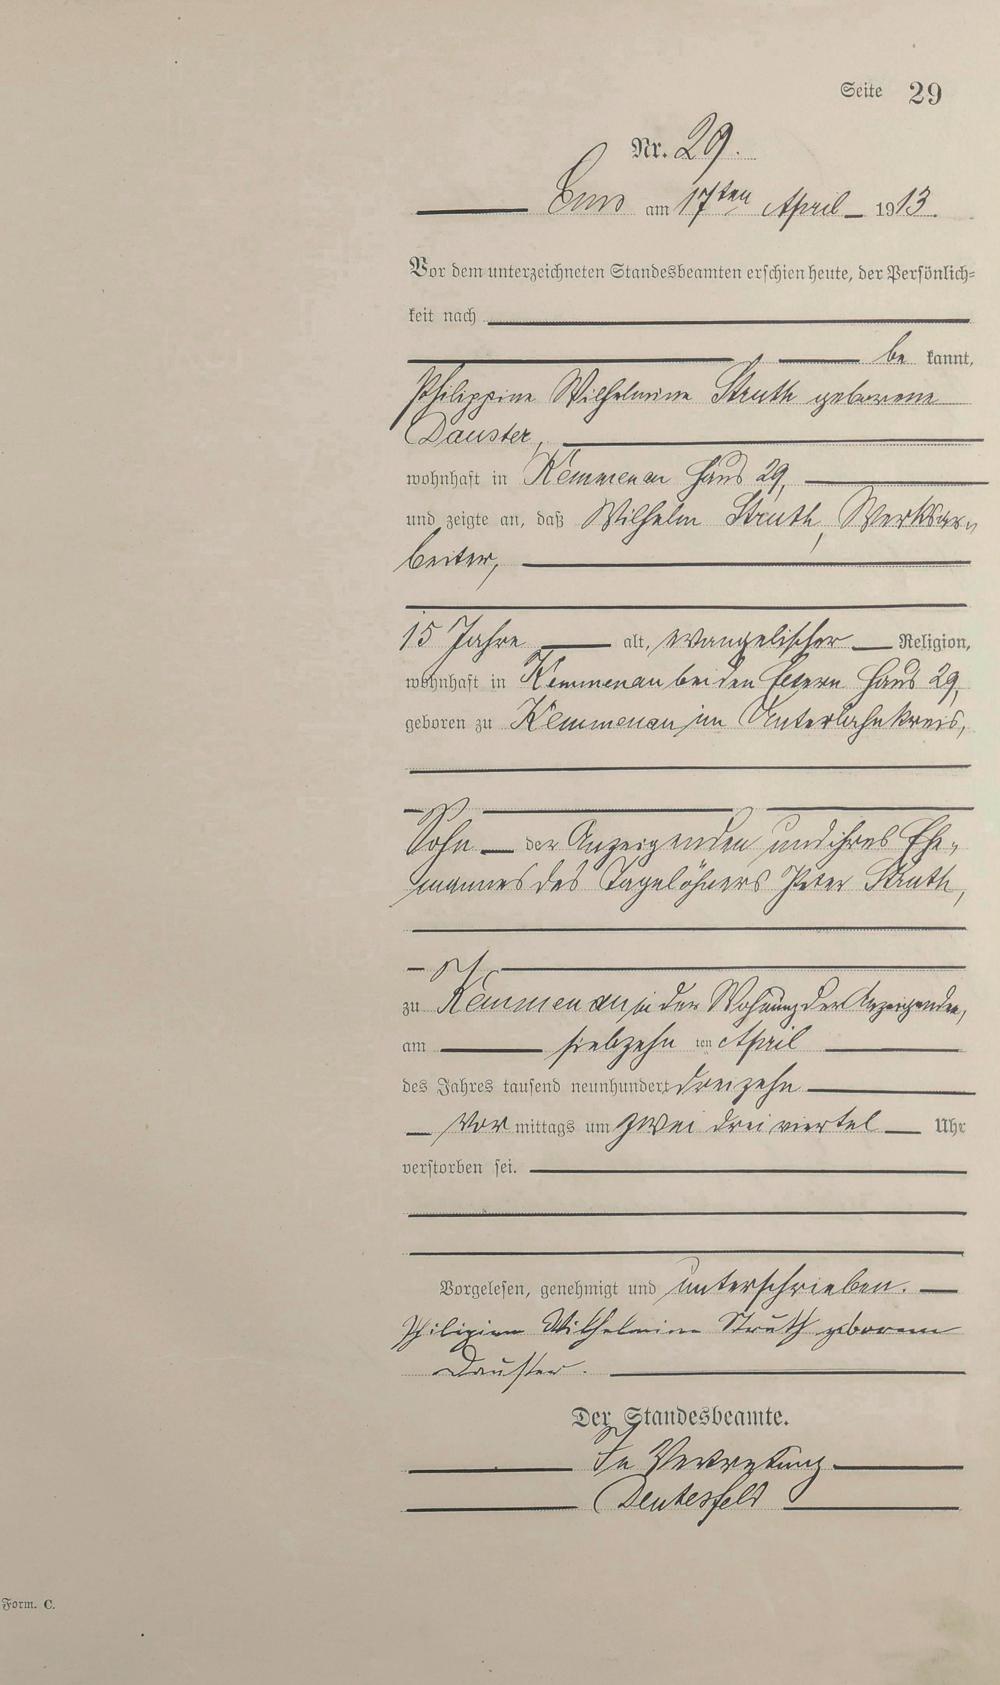 Seite 29
Nr. 29.
Ems am 17ten April 1913.
Vor dem unterzeichneten Standesbeamten erschien heute, der Persönlich-
keit nach
be kannt,
Philippine Wilhelmine Struth geborene
Dauster,
wohnhaft in Kemmenau Haus 29,
und zeigte an, daß Wilhelm Struth, Werksar-
beiter,
15 Jahre alt, evangelischer Religion,
wohnhaft in Kemmenau bei den Eltern Haus 29,
geboren zu Kemmenau im Unterlahnkreis,
Sohn der Anzeigenden und ihres Ehe-
mannes des Tagelöhners Peter Struth,
zu Kemmenau in der Wohnung der Anzeigenden,
am siebzehn ten April
des Jahres tausend neunhundert dreizehn
Vor mittags um zwei drei viertel Uhr
verstorben sei.
Vorgelesen, genehmigt und unterschrieben.
Wilhelmine Struth geborene
Dauster.
Der Standesbeamte.
In Vertretung
Form. C.